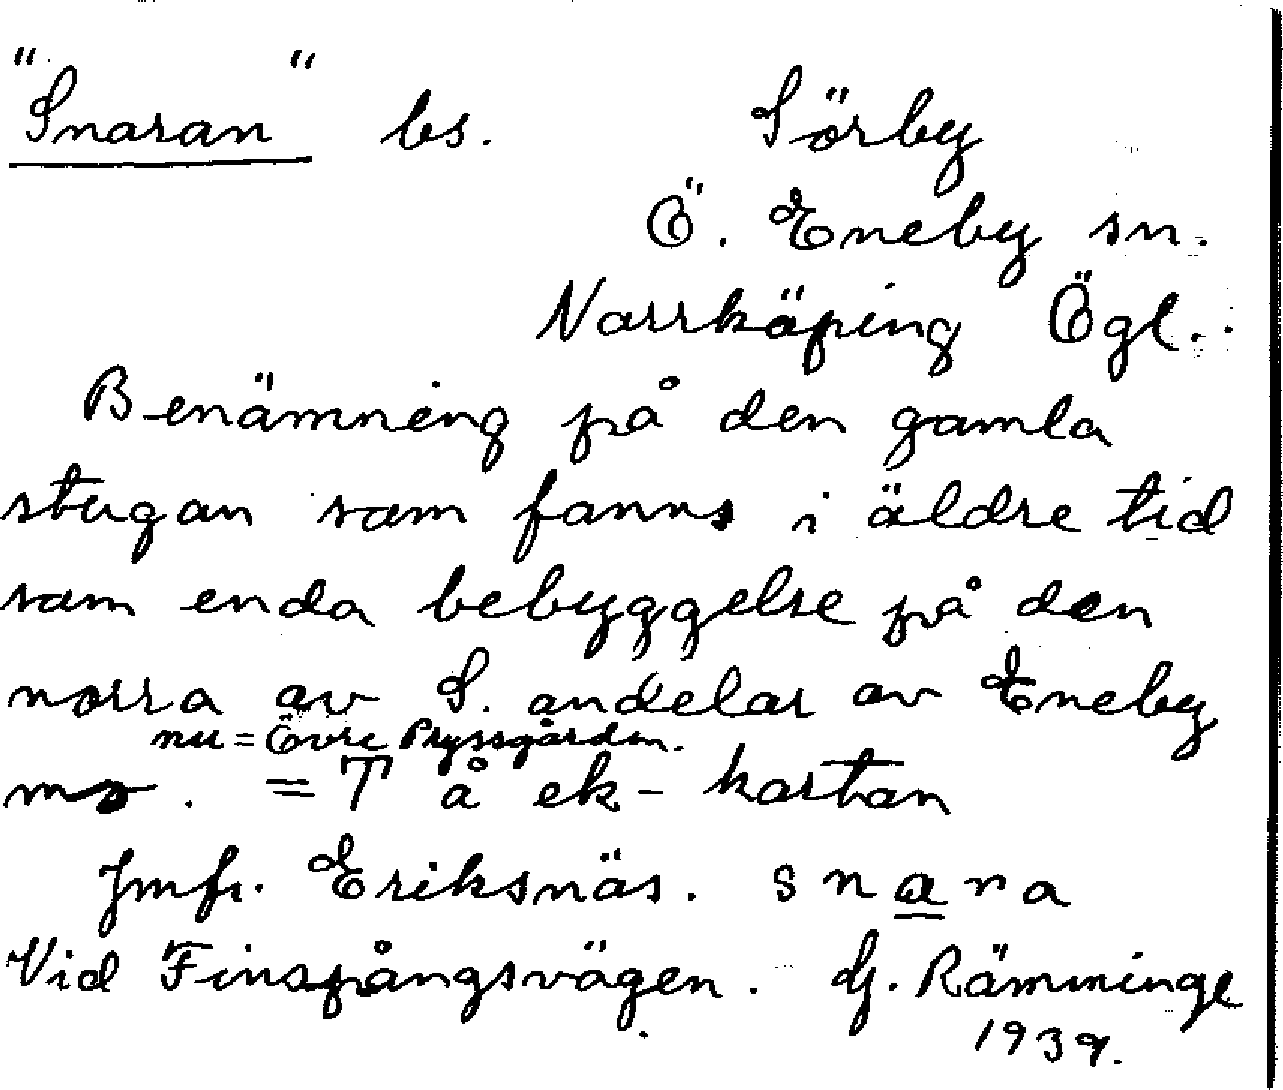 "Snaran" bs. Sörby
Ö. Eneby sn.
Norrköping Ögl.
Benämning på den gamla
stugan som fanns i äldre tid
som enda bebyggelse på den
norra av S. andelar av Eneby
nu = Övre Pryssgården.
mo. = T å ek-kartan
Jmfr. Eriksnäs. snara
Vid Finspångsvägen. Hj. Rämminge
1939.